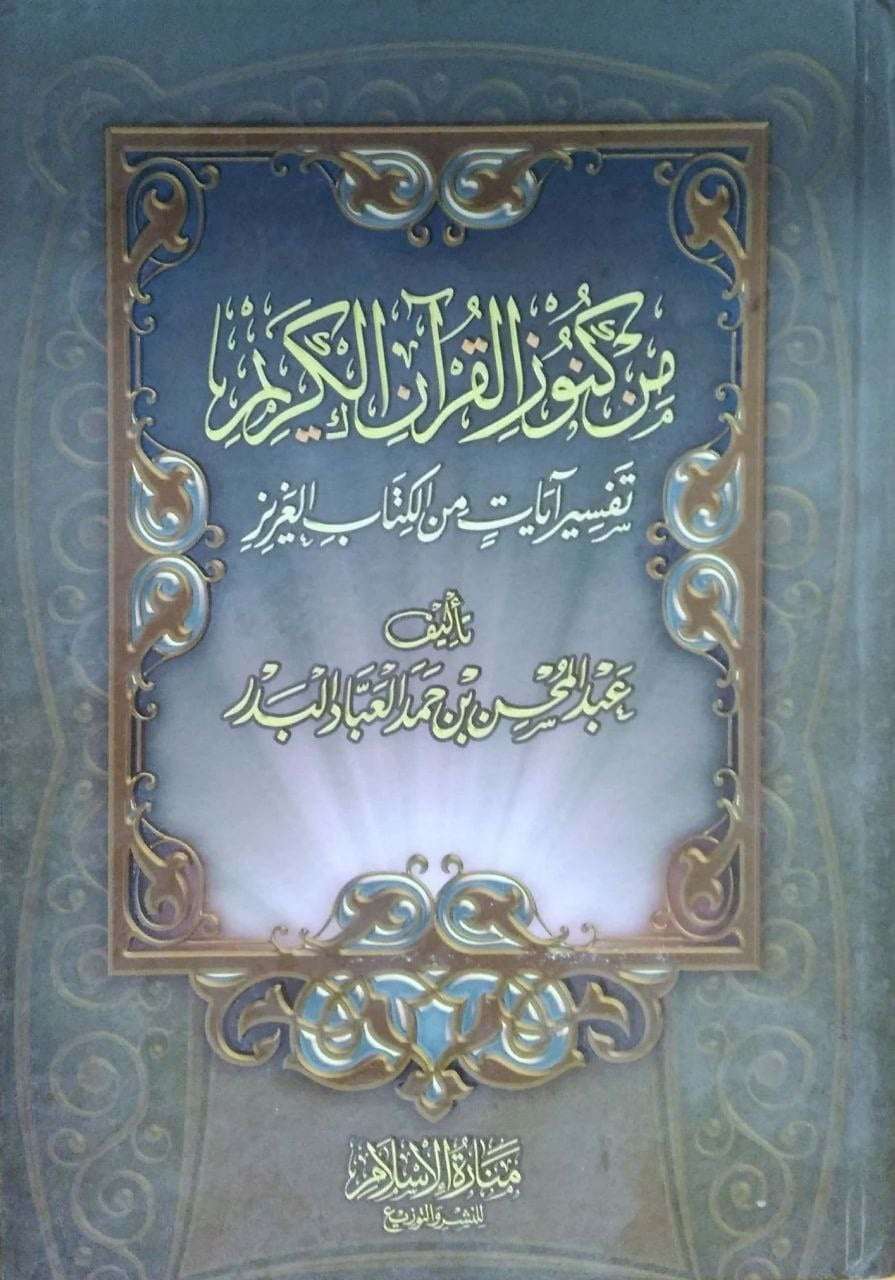 مِنْ كُنُوزِ الْقُرْآنِ الْكَرِيْمِ
تَفْسِير آيَاتٍ مِنَ الْكِتَابِ الْعَزِيزِ
تَأْلِيْف
عَبْدِ الْمُحْسِن بْنِ حَمَد الْعَبَّاد الْبَدْر
مَنَارَةُ الْإِسْلَامِ
لِلنَّشْرِ وَالتَّوْزِيْع